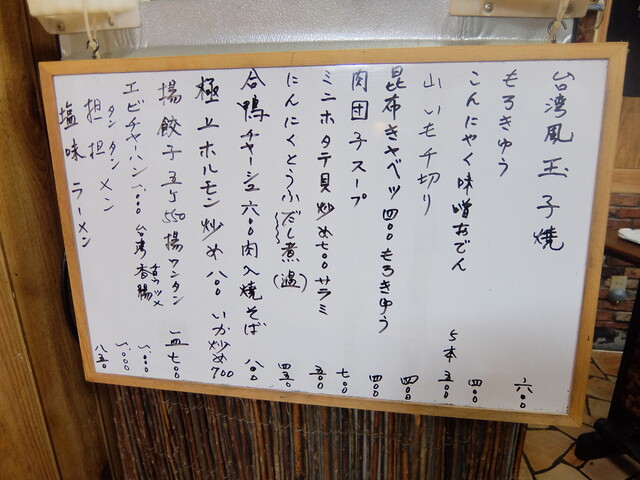 台湾風玉子焼 六〇〇
もろきゅう 四〇〇
こんにゃく味噌おでん 5本 五〇〇
山いも千切り 四〇〇
昆布キャベツ 四〇〇 もろきゅう 四〇〇
肉団子スープ 七〇〇
ミニホタテ貝炒め 七〇〇 サラミ 五〇〇
にんにくとうふだし煮(温) 四五〇
合鴨チャーシュー 六〇〇 肉入焼そば 八〇〇
極上ホルモン炒め 八〇〇 いか炒め 700
揚餃子 五ケ 550 揚ワンタン 七〇〇
エビチャーハン 一、〇〇〇 台湾香腸 一、〇〇〇
タンタン
担担メン 一、〇〇〇
塩味ラーメン 八五〇